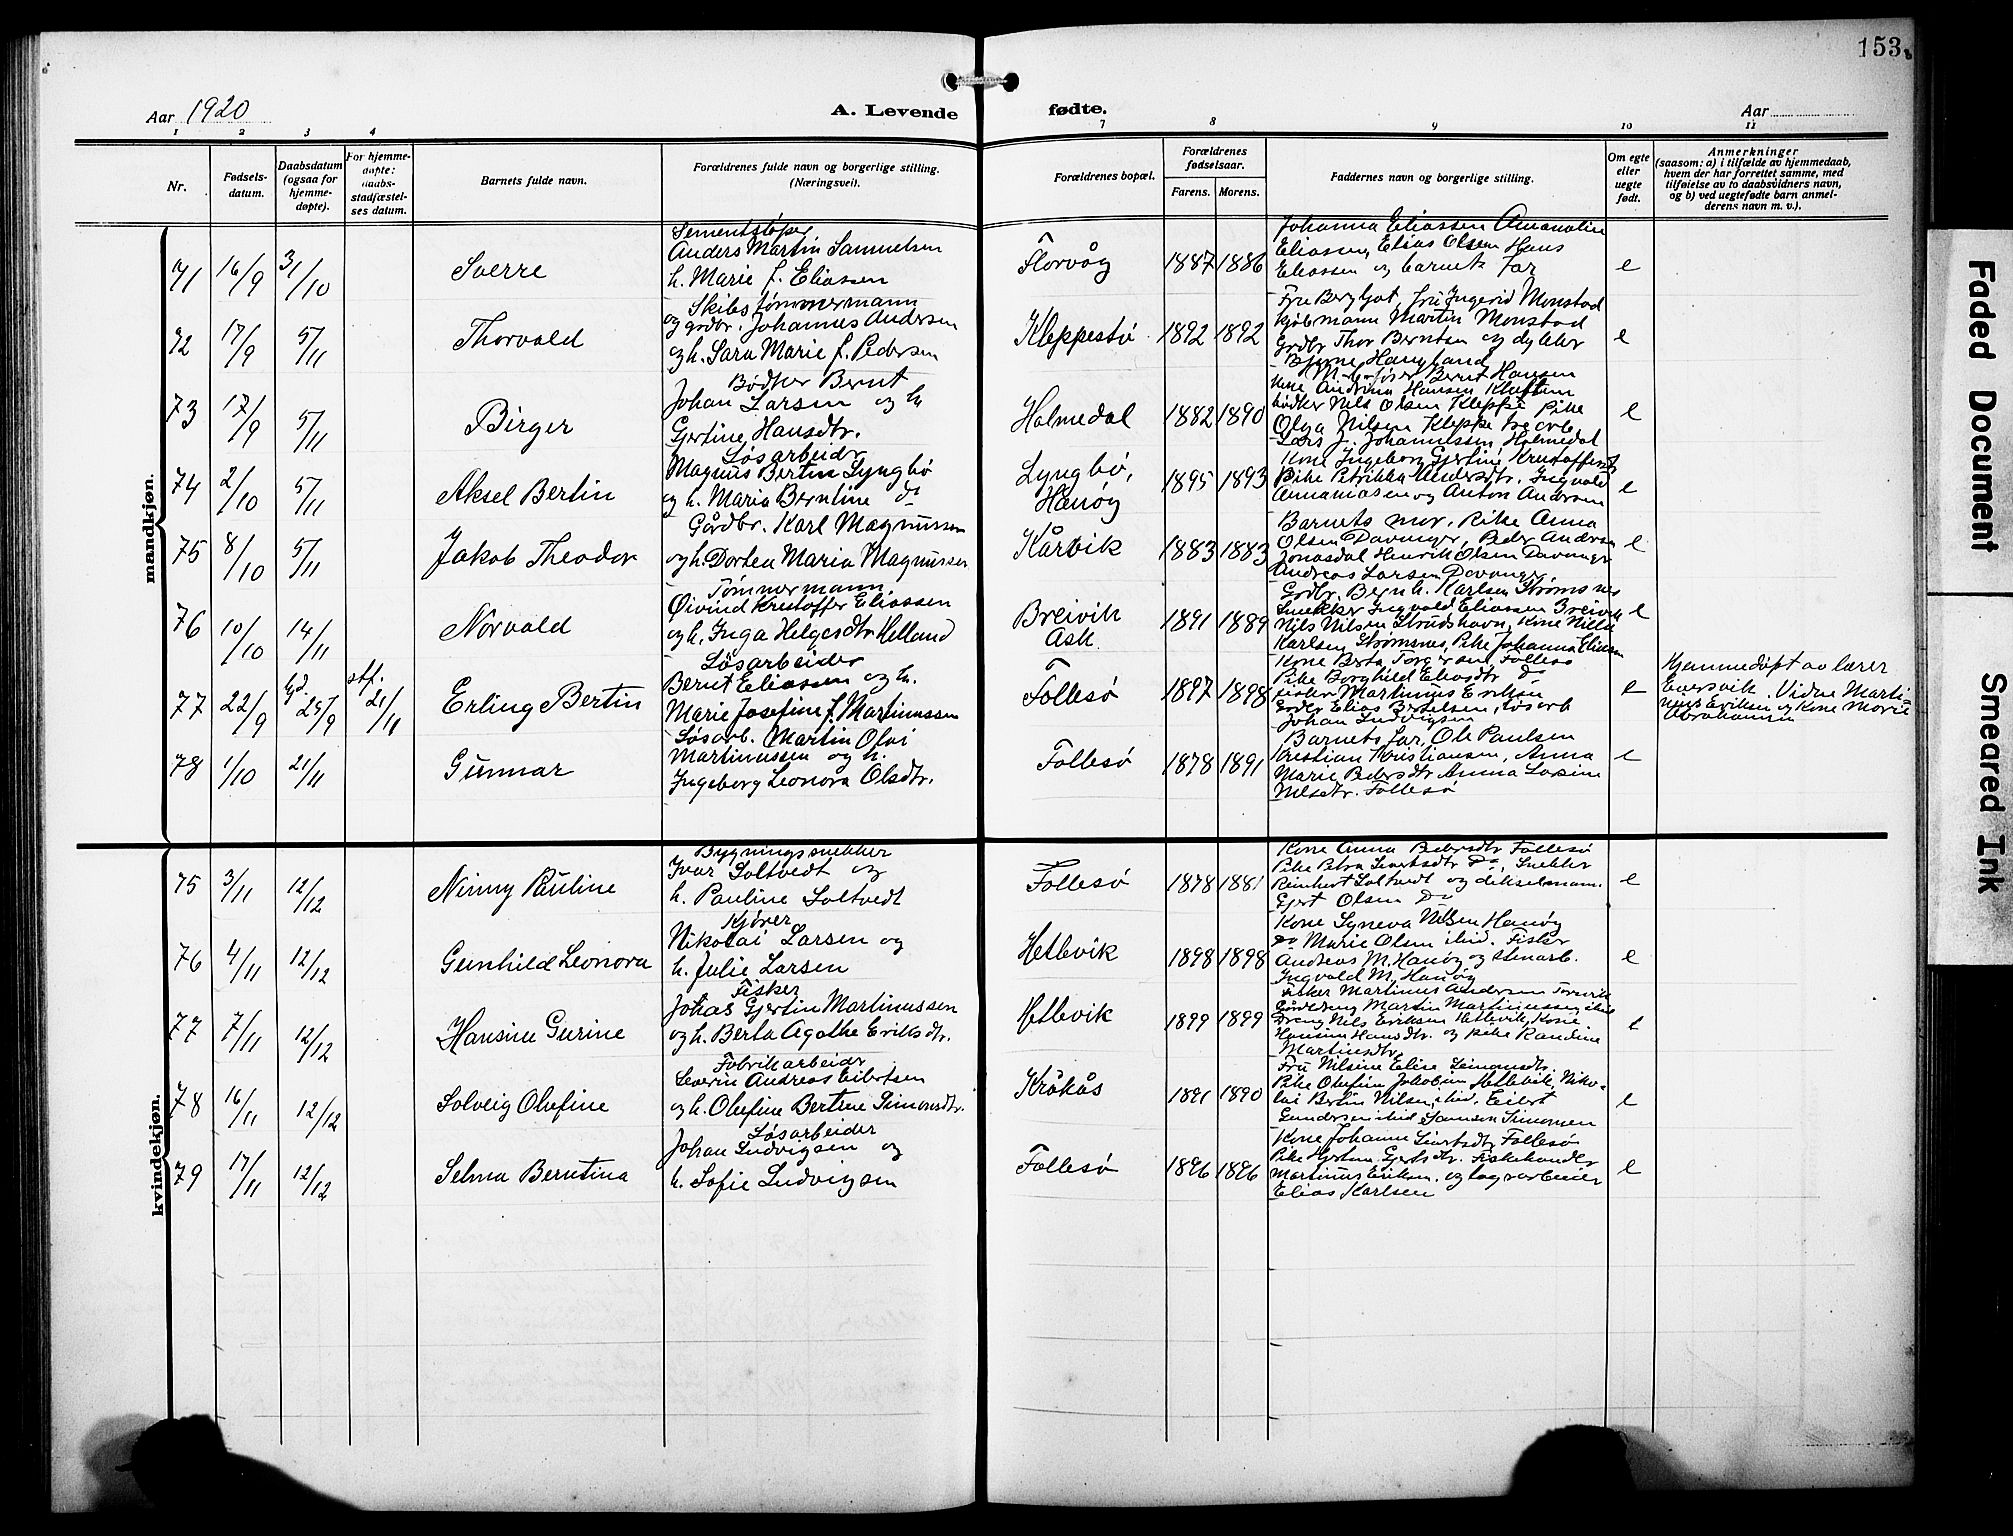 153
Aar 1920
A. Levende fødte.
Aar
1 2 3 4 7 8 9 10 11
Nr.
Fødsels-
datum.
Daabsdatum
(ogsaa for
hjemme-
døpte).
For hjemme-
døpte:
daabs-
stadfæstel-
ses datum.
Barnets fulde navn.
Forældrenes fulde navn og borgerlige stilling.
(Næringsvei).
Forældrenes bopæl.
Forældrenes
fødselsaar.
Farens. Morens.
Faddernes navn og borgerlige stilling.
Om egte
eller
uegte
født.
Anmerkninger
(saasom: a) i tilfælde av hjemmedaab,
hvem der har forrettet samme, med
tilføielse av to daabsvidners navn,
og b) ved uegtefødte barn anmel-
derens navn m. v.).
mandkjøn.
71 16/9 31/10 Sverre
Sementstøper
Anders Martin Samuelsen
h. Marie f. Eliasen
Florvåg 1887 1886
Johanna Eliassen
Eliassen, Elias Olsen Hans
Eliassen og barnets far
e
72 17/9 5/11 Thorvald
Skibstømmermann
og grdbr. Johannes Andersen
og h. Sara Marie f. Pedersen
Kleppestø 1892 1892
Fru Bergljot, fru Ingerid Monstad
kjøbmann Martin Monstad
Grdbr Thor Berntsen og
Bjarne Haugland
e
73 17/9 5/11 Birger
Bødker Bernt
Johan Larsen og h
Gjertine Hansdtr.
Holmedal 1882 1890
Bernt Hansen
kone Andrina Hansen
bødker Nils Olsen Kleppe Pike
Olga Nilsen Kleppe
Lars J. Johannessen Holmedal
e
74 2/10 5/11 Aksel Bertin
Løsarbeider
Magnus Bertin Lyngbø
og h. Maria Berntine do
Lyngbø,
Hanøy 1895 1893
Kone Ingeborg Gjertine
Pike Petrikka Andersdtr. Ingvald
og Anton Andersen
e
75 8/10 5/11 Jakob Theodor
Gårdbr. Karl Magnussen
og h. Dortea Maria Magnussen
Kårbik 1883 1883
Barnets mor, Pike Anna
Olsen Davanger, Peder Andersen
Henrik Olsen Davanger
Andreas Larsen Davanger
e
76 10/10 14/11 Norvald
Tømmermann
Øivind Kristoffer Eliassen
og h. Inga Helgesdtr Helland
Breivik
Ask 1891 1889
Grdbr. Bernh. Karlsen Strømsnes
Snekker Ingvald Eliassen Breivik
Nils Nilsen Strudshavn, Kone Nille
Karlsen Strømsnes, Pike Johanna Eliassen
e
77 22/9 hjd. 25/9 stf. 21/11 Erling Bertin
Løsarbeider
Bernt Eliassen og h.
Marie Josefine f. Martinussen
Follesø 1897 1898
Kone Berta Torgersen, Follesø
Pike Borghild Eliasdtr do
fisker Martinus Eriksen
Grdbr Elias Bertelsen, løsarb
Johan Ludvigsen
e
Hjemmedøpt av lærer
Eversvik. Vidne Marti-
nus Eriksen og Kone Marie
Abrahamsen
78 1/10 21/11 Gunnar
Løsarb. Martin Olai
Martinussen og h.
Ingeborg Leonora Olsdtr.
Follesø 1878 1891
Barnets far, Ole Paulsen
Kristian Kristiansen, Anna
Marie Pedersdtr Anna Lovise
Nilsdtr. Follesø
e
kvindekjøn.
75 3/11 12/12 Ninny Pauline
Bygningssnekker
Ivar Soltvedt og
h. Pauline Soltvedt
Follesø 1878 1881
Kone Anna Pedersdtr Follesø
Pike Petra Sivertsdtr do, Snekker
Reinhert Soltvedt og dikselmann.
Gjert Olsen do
e
76 4/11 12/12 Gunhild Leonora
Kjører
Nikolai Larsen og
h. Julie Larsen
Hetlevik 1898 1898
Kone Syneva Nilsen Hanøy
do Marie Olsen ibid. Fisker
Andreas M. Hanøy og stenarb.
Ingvald M. Hanøy
e
77 7/11 12/12 Hansine Gurine
Fisker
Johas Gjertin Martinussen
og h. Berta Agathe Eriksdtr.
Hetlevik 1899 1899
Fisker Martinus Andersen
Martin Martinussen, ibid
Dreng Nils Eriksen Hetlevik, Kone
Hansine Hansdtr. og pike Randine
Martinsdtr
e
78 16/11 12/12 Solveig Olufine
Fabrikarbeider
Severin Andreas Eilertsen
og h. Olufine Bertine Simonsdtr.
Kråkås 1891 1890
Fru Nilsine Elise Simonsdtr.
Pike Olufine Jakobsen Hetlevik, Niko-
lai Bertin Nilsen, ibid. Eilert
Gundersen ibid Samson Simonsen
e
79 17/11 12/12 Selma Berntina
Løsarbeider
Johan Ludvigsen og
h. Sofie Ludvigsen
Follesø 1896 1896
Kone Johanne Sivertsdtr Follesø
Pike Gjertsdtr. Fiskehandler
Martinus Eriksen. og
Elias Karlsen
e
Faded Document
Smeared Ink